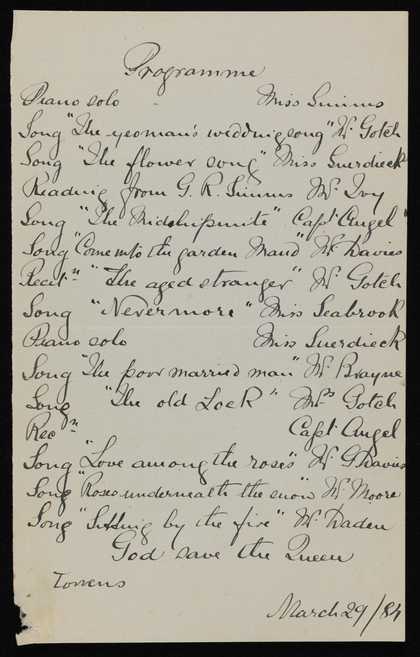 Programme
Piano solo Miss Simms
Song "The yeoman's wedding song" Mr Gotch
Song "The flower song" Miss Suerdieck
Reading from G. R. Simms Mr Ivy
Song "The Midshipmite" Capt Angel
Song "Come into the garden Maud" Mr Davies
Recitn "The aged stranger" Mr Gotch
Song "Nevermore" Miss Seabrook
Piano solo Miss Suerdieck
Song "The poor married man" Mr Brayne
Song "The old Lock" Mrs Gotch
Recn Capt Angel
Song "Love among the roses" Mr G Davies
Song "Roses underneath the snow" Mr Moore
Song "Sitting by the fire" Mr
God save the Queen
Torrens
March 29/84